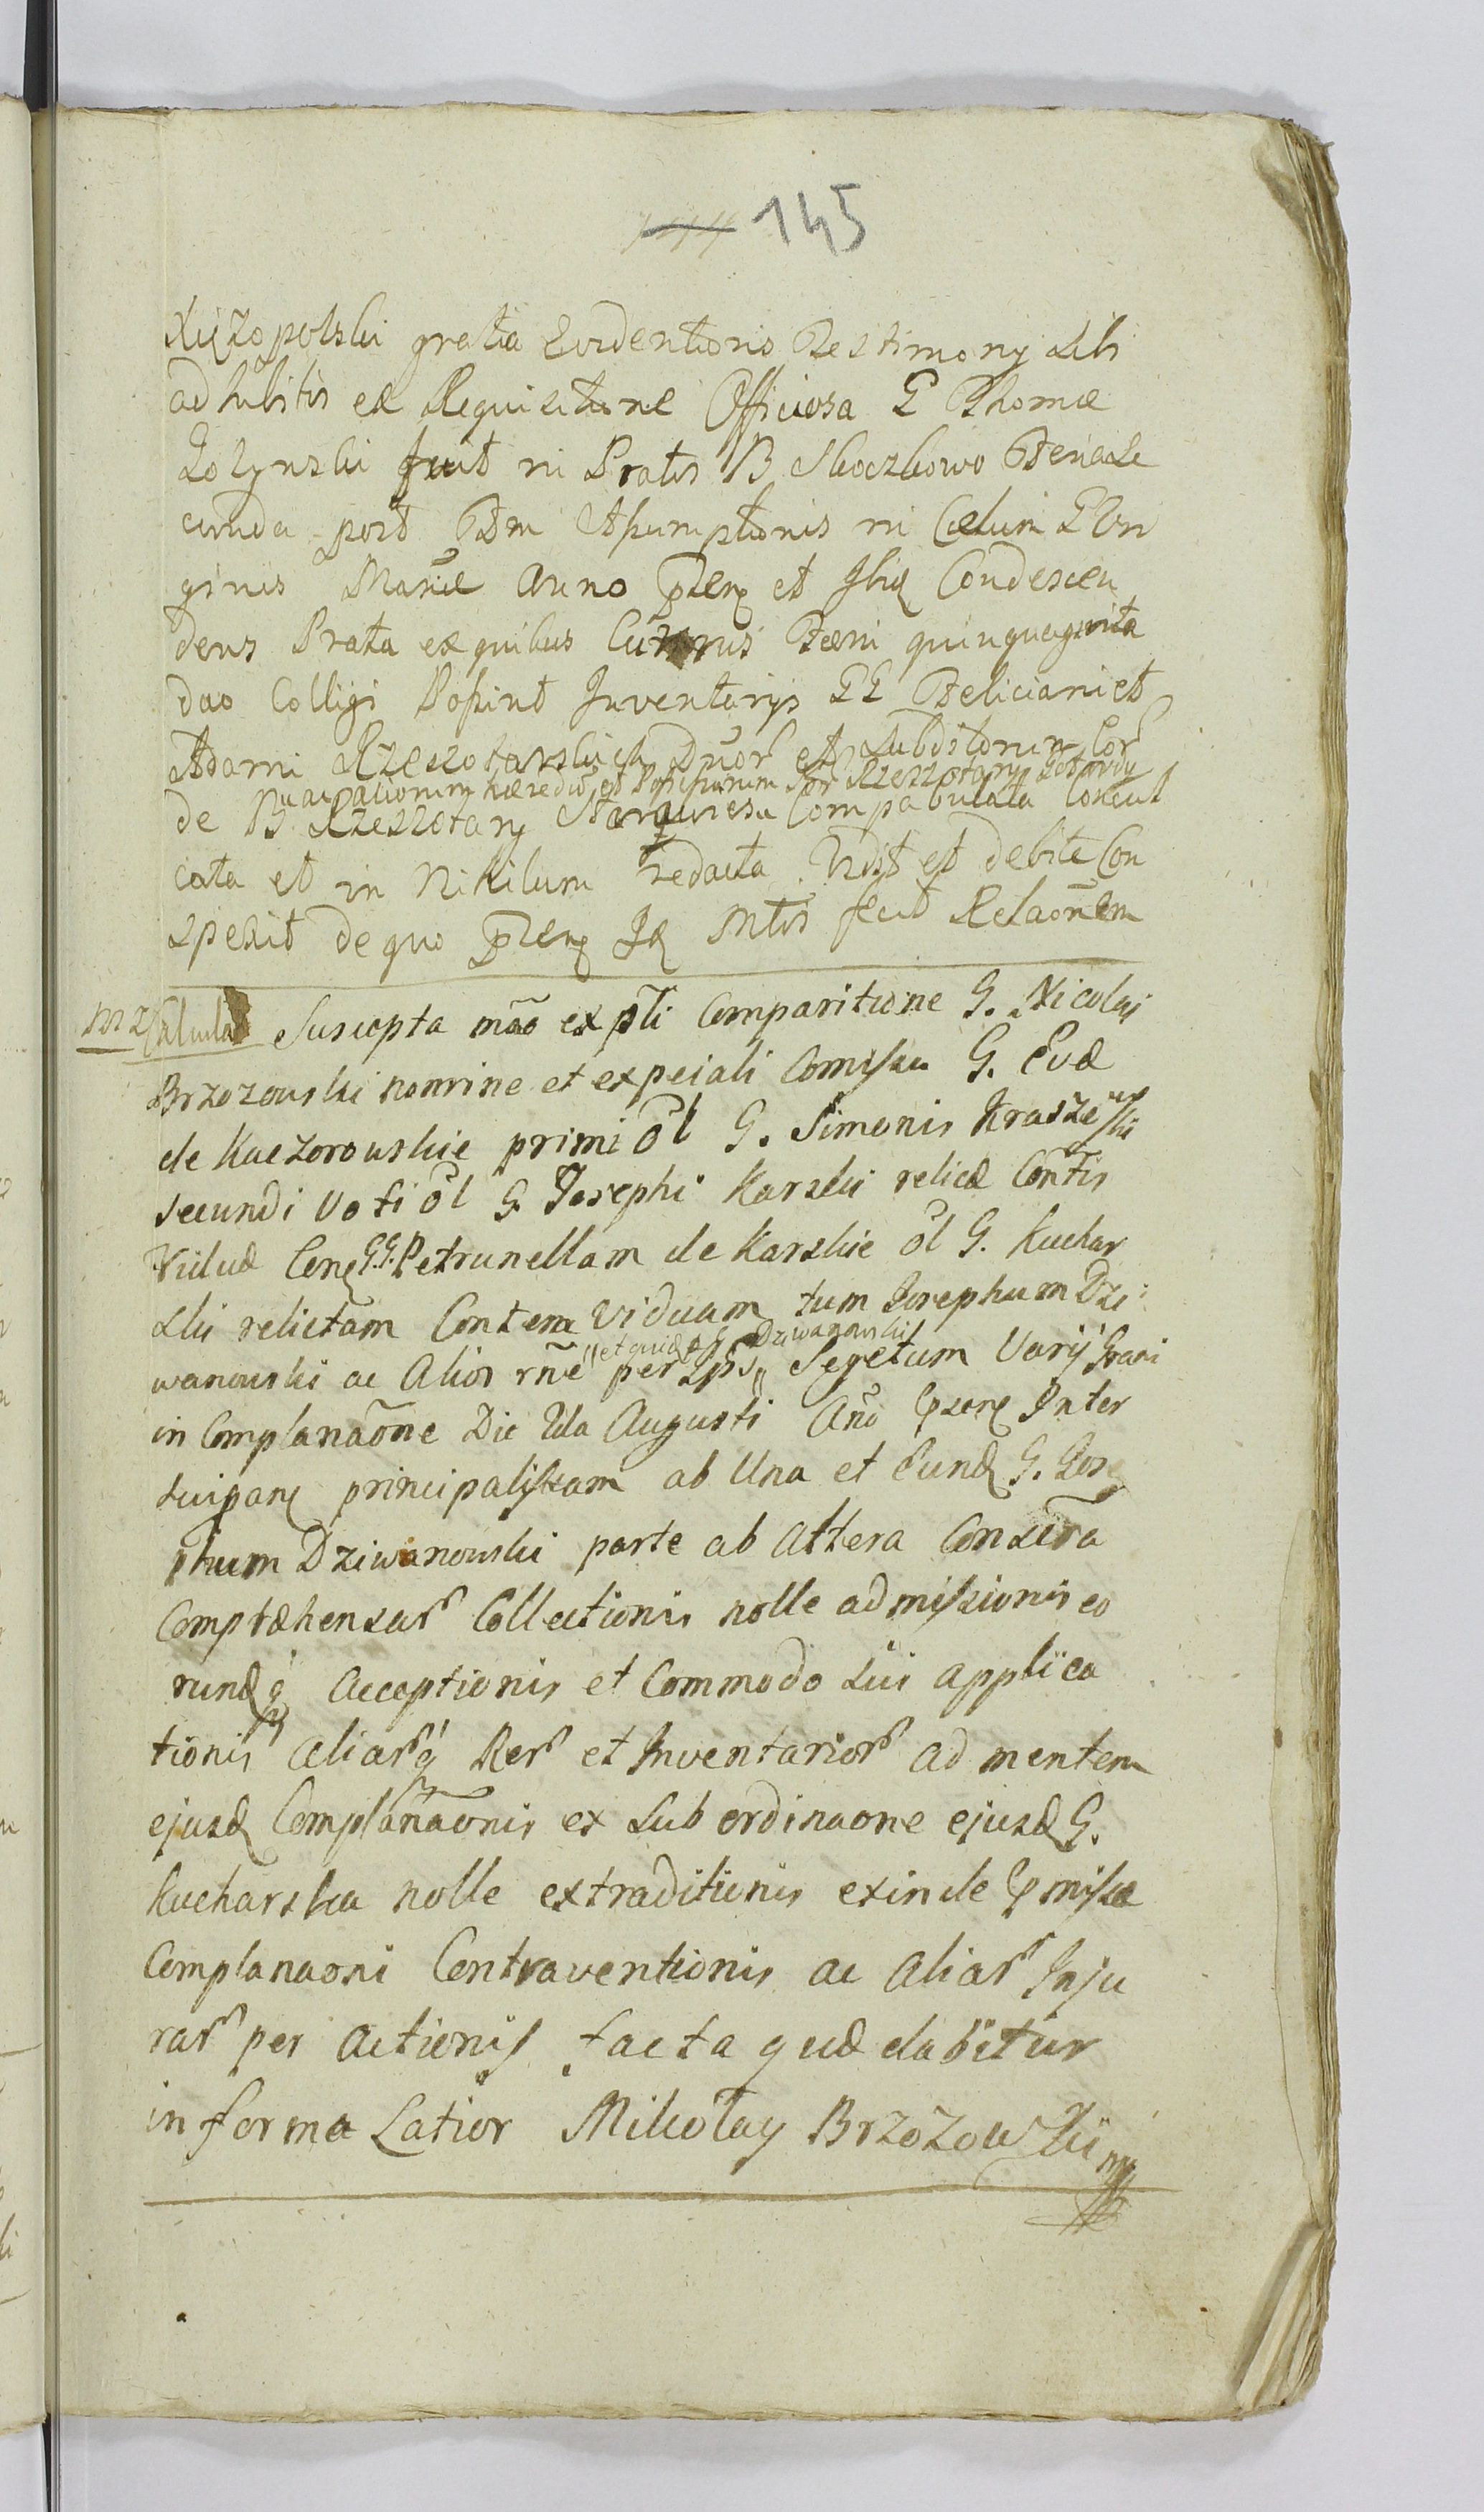 145
Xiężopolski gratia Evidentioris Testimony sibi
adhibitis ex Requisitione Officiosa G Thomæ
Zołynski fuit in Pratis B Skoczkowo Feria Se
cunda post Ftm Assumptionis in Cælum B Vir
ginis Mariæ Anno prænq et Ibiq Condescen
dens Prata ex quibus Currus Fæni quinquaginta
duo Colligi Possint Inventarijs GG Feliciani et
Adami Rzeszotarskich Duor et Subditorum Eor
de B Rzeszotary Compabulata Concul
cata et in Nihilum redacta. Vdit et debite Con
spexit de quo prænq Iq Mtis fecit Relaonem
Suscepta mão ex pti Comparitione G. Nicolai
Brzozowski nomine et expeciali Comissu G. Evæ
de Kaczorowskie primi ol G. Simonis Kraszewski
secundi Voti ol G. Josephi Karski relicæ Contis
Viduæ Cenq G.G. Petrunellam de Karskie ol G. Kuchar
ski relictam Contem Viduam tum Josephum Dzi
et quidq G. Dziwanowski
wanowski ac Alios rñe per Ips Segetum Varij Grani
in Complanaõne Die 2da Augusti Año præenq Inter
suipanq principalissam ab Una et Eundq G. Jose
phum Dziwanowski parte ab Altera Consera
Compræhensar Collectionis nolle admissionis eo
rundq q Acceptionis et Commodo sui applica
tionis aliarq Rer et Inventarior ad mentem
ejusdq Complanaonis ex subordinaone ejusdq G.
Kucharska nolle extraditionis exinde præmissæ
Complanaoni Contraventionis ac aliar Inju
rar per Actionis facta quæ dabitur
in forma Latior Mikołay Brzozowski mp